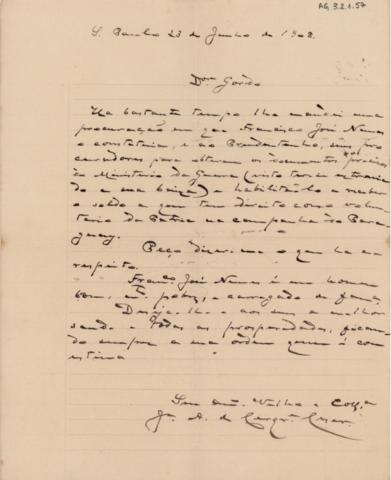 AG, 3.2.1.57
S. Paulo 23 de Junho de 1902.
Dor. Gordo
Ha bastante tempo lhe mandei uma
procuração em que Francisco José Nunes
o constituia, e ao Prudentinho, seus pro
curadores para obterem os documentos precisos
do Ministerio da Guerra (visto ter se extravia
do a sua baixa) e habilital-o a receber
o soldo a que tem direito como volun
tario da Patria na campanha do Para
guay.
Peço dizer-me o que ha a
respeito.
Franco José Nunes é um homem
bom, mto pobre, e carregado de familia.
Desejo-lhe e aos seus a melhor
saude e todas as prosperidades, fican
do sempre a sua ordem quem é com
estima
Seu Velho e Colla
de Cerqra Cesar